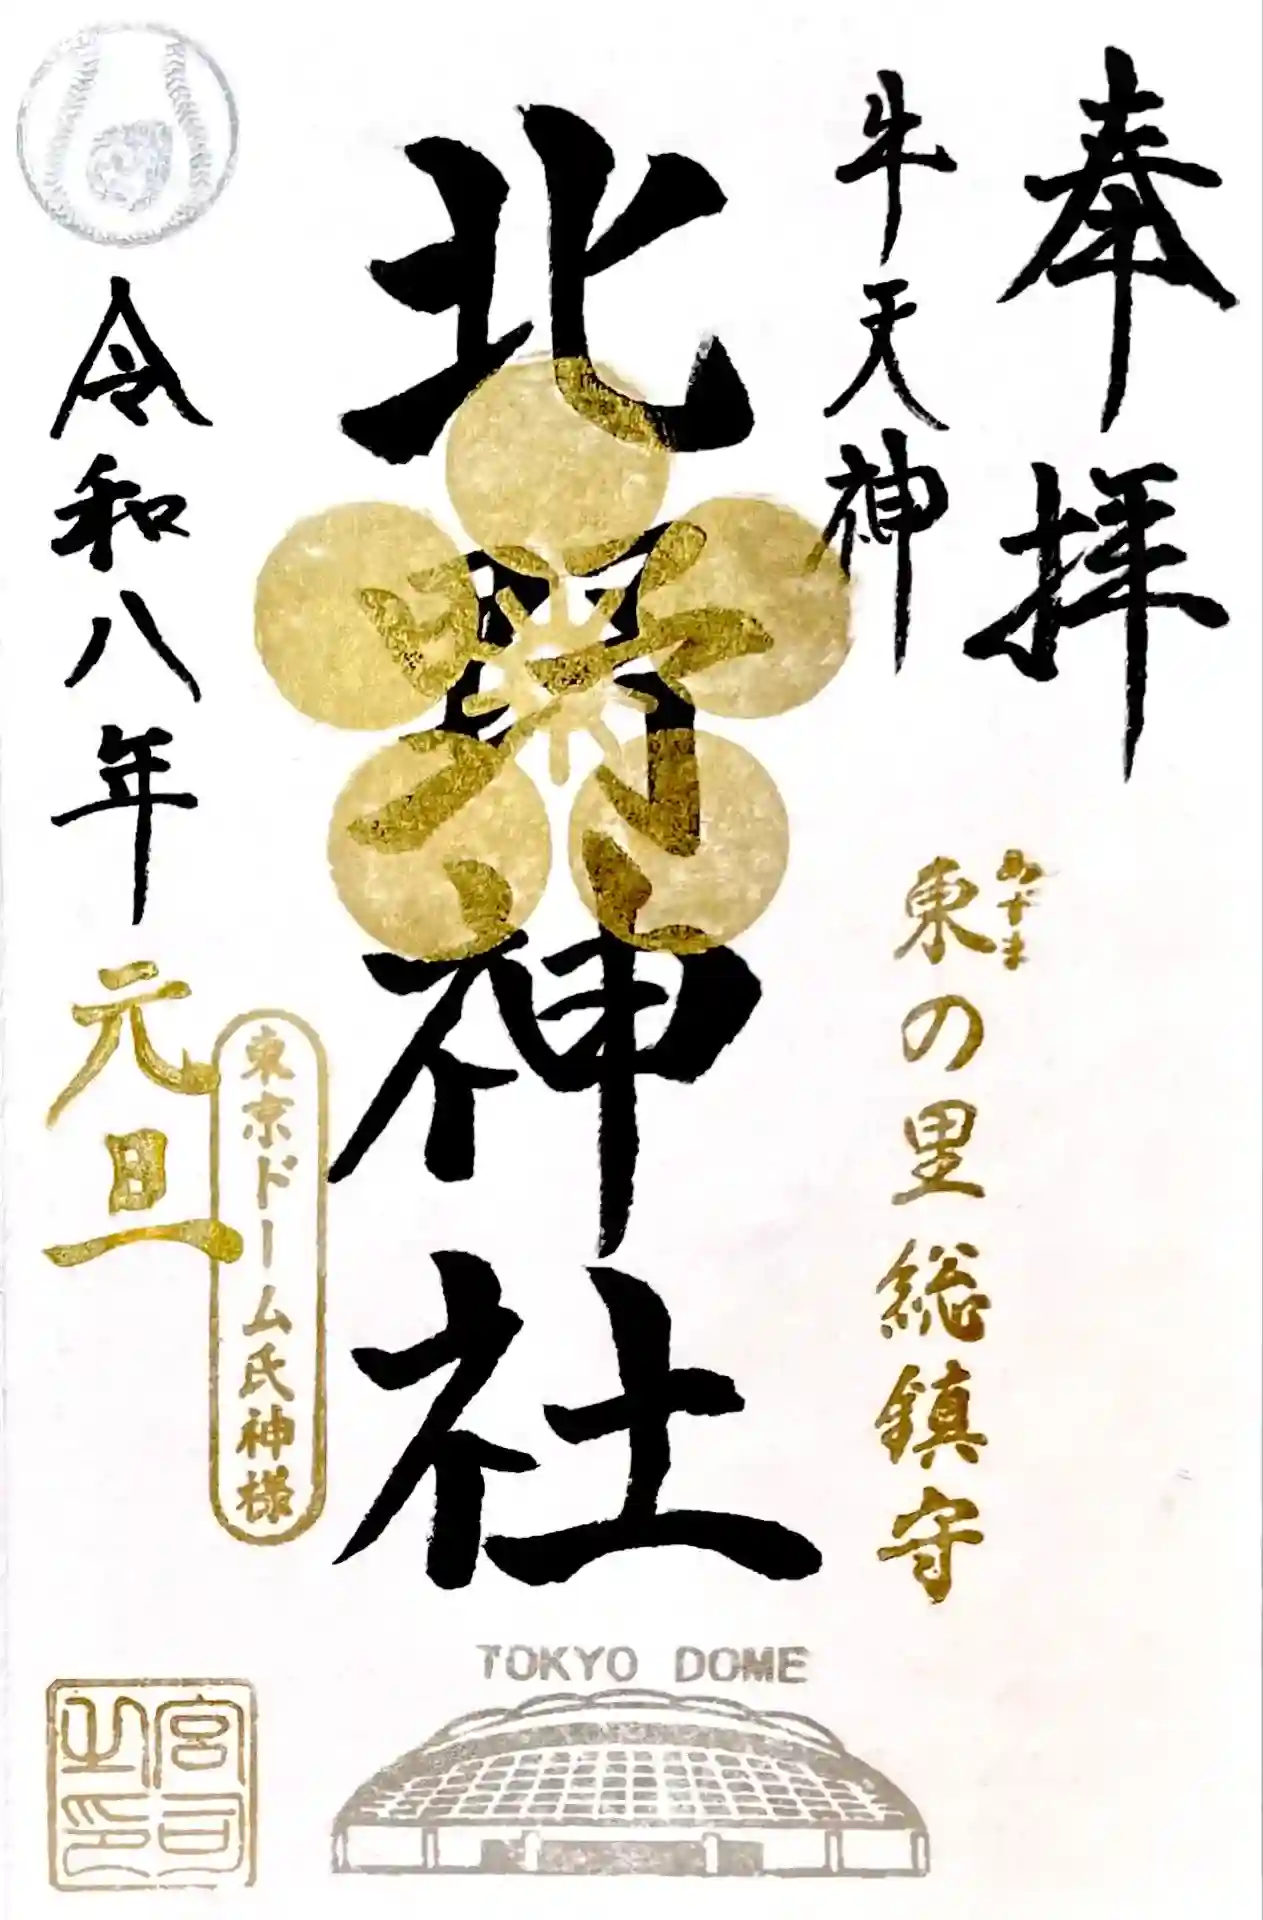 奉拝
牛天神
東の里総鎮守
あずま
北野神社
令和八年元旦
東京ドーム氏神様
TOKYO DOME
宮司之印